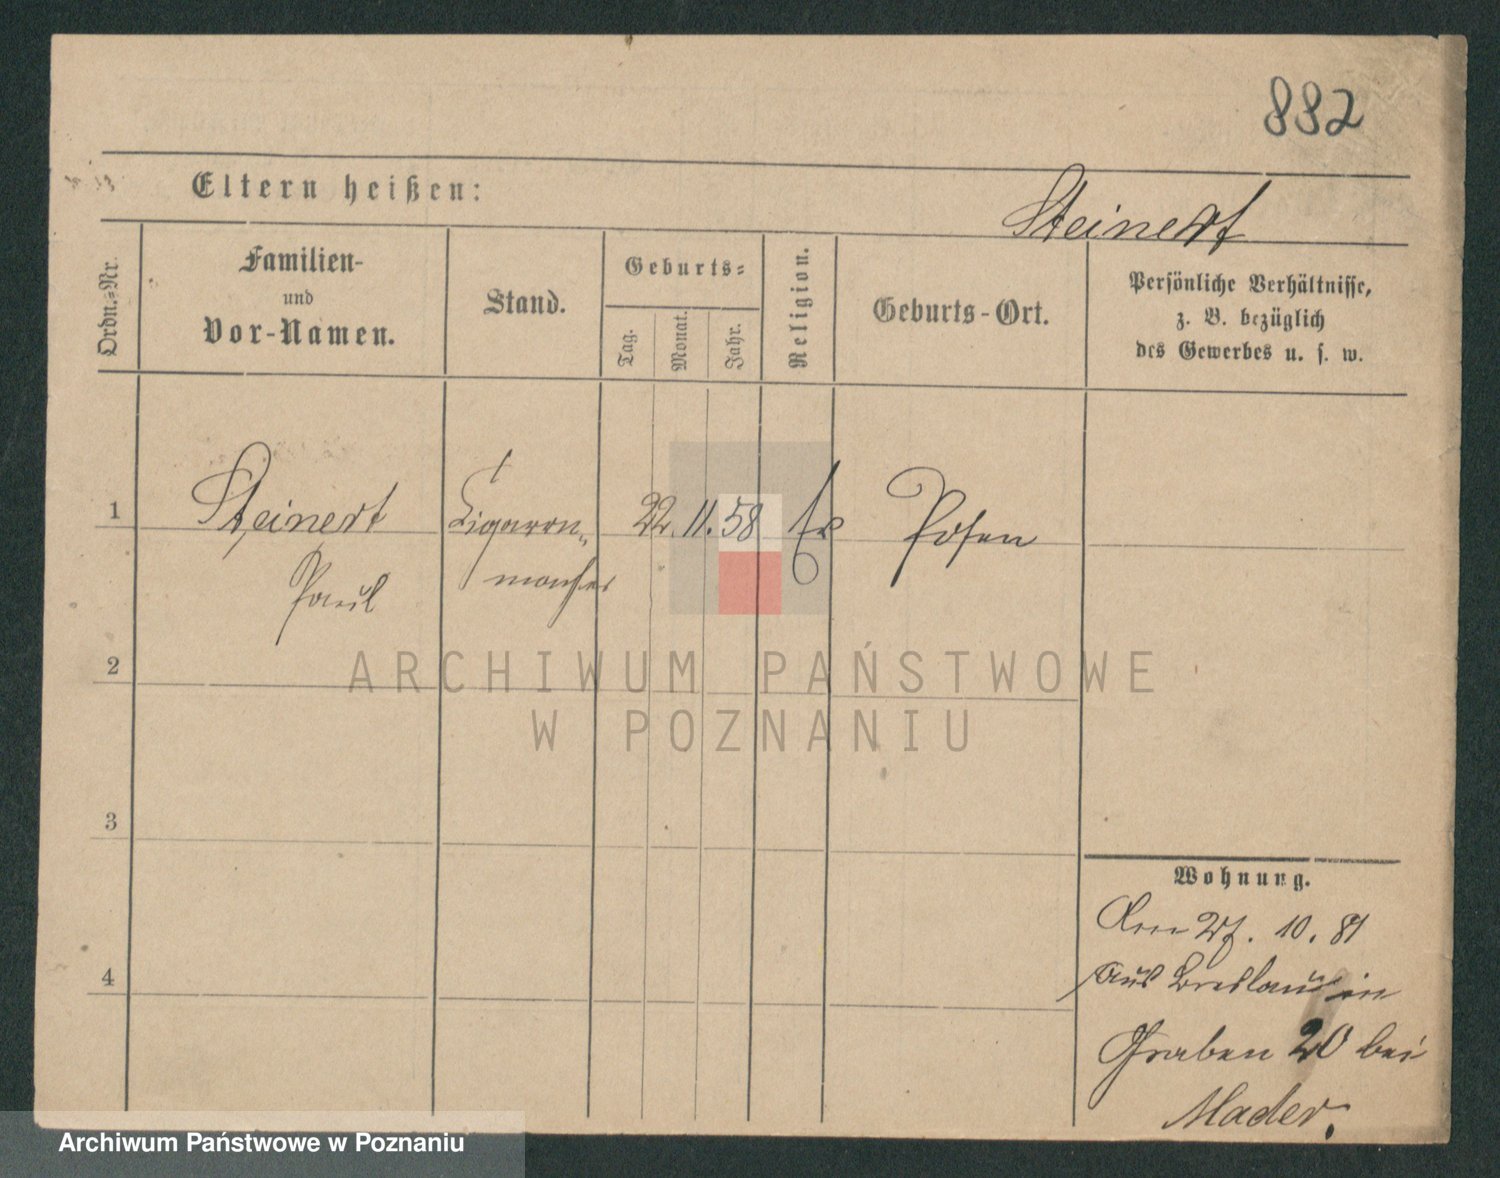 882
Eltern heißen:
Steinert
Ordn.=Nr.
Familien-
und
Vor-Namen.
Stand.
Geburts=
Tag.
Monat.
Jahr.
Religion.
Geburts-Ort.
Persönliche Verhältnisse,
z. B. bezüglich
des Gewerbes u. s. w.
1
Steinert
Paul
Cigarren-
macher
22. 11. 58
Posen
2
3
4
Wohnung.
Den 27. 10. 81
aus Breslau in
Graben 20 bei
Mader.
ARCHIWUM PAŃSTWOWE
W POZNANIU
Archiwum Państwowe w Poznaniu